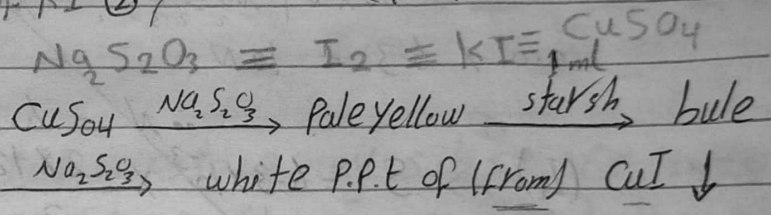 Na2S2O3 ≡ I2 ≡ KI ≡ CuSO4
1ml
CuSO4 Na2S2O3→ Pale yellow starsh→ bule
Na2S2O3→ white P.P.t of (from) CuI ↓